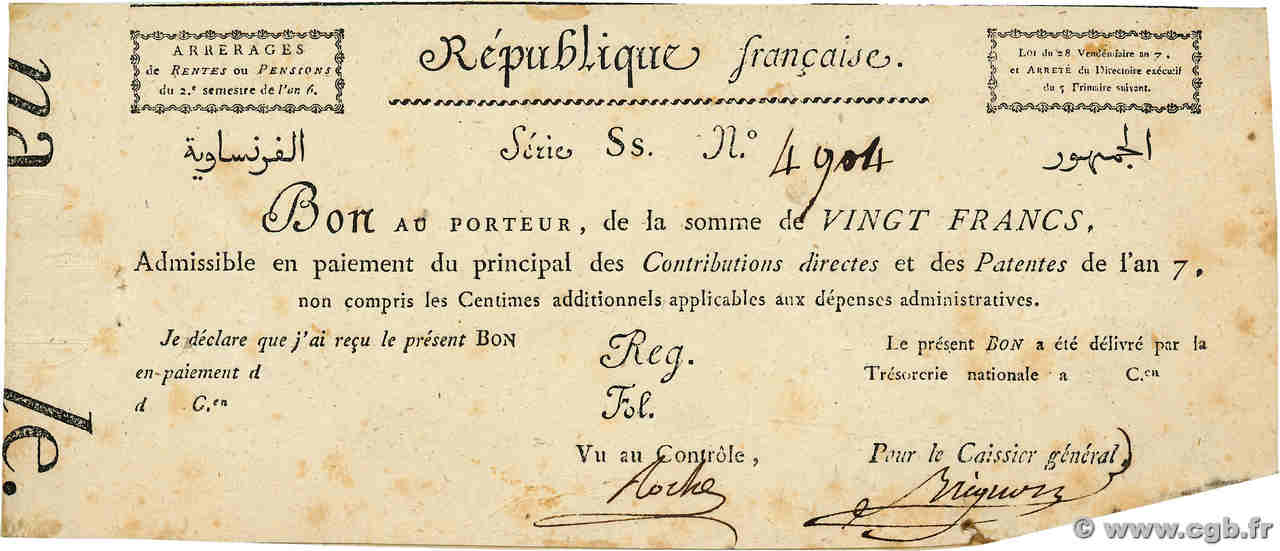 ARRERAGES
de RENTES ou PENSIONS
du 2.e semestre de l'an 6.
République française.
Loi du 28 Vendémiaire an 7,
et ARRETÉ du Directoire exécutif
du 5 Frimaire suivant.
الفرنساوية
Série Ss. N.o 4904
الجمهور
Bon AU PORTEUR, de la somme de VINGT FRANCS,
Admissible en paiement du principal des Contributions directes et des Patentes de l'an 7,
non compris les Centimes additionnels applicables aux dépenses administratives.
Je déclare que j'ai reçu le présent BON
en-paiement d
d C.en
Reg.
Fol.
Le présent BON a été délivré par la
Trésorerie nationale a C.en
Vu au Contrôle,
Pour le Caissier général,
na
le.
© www.cgb.fr